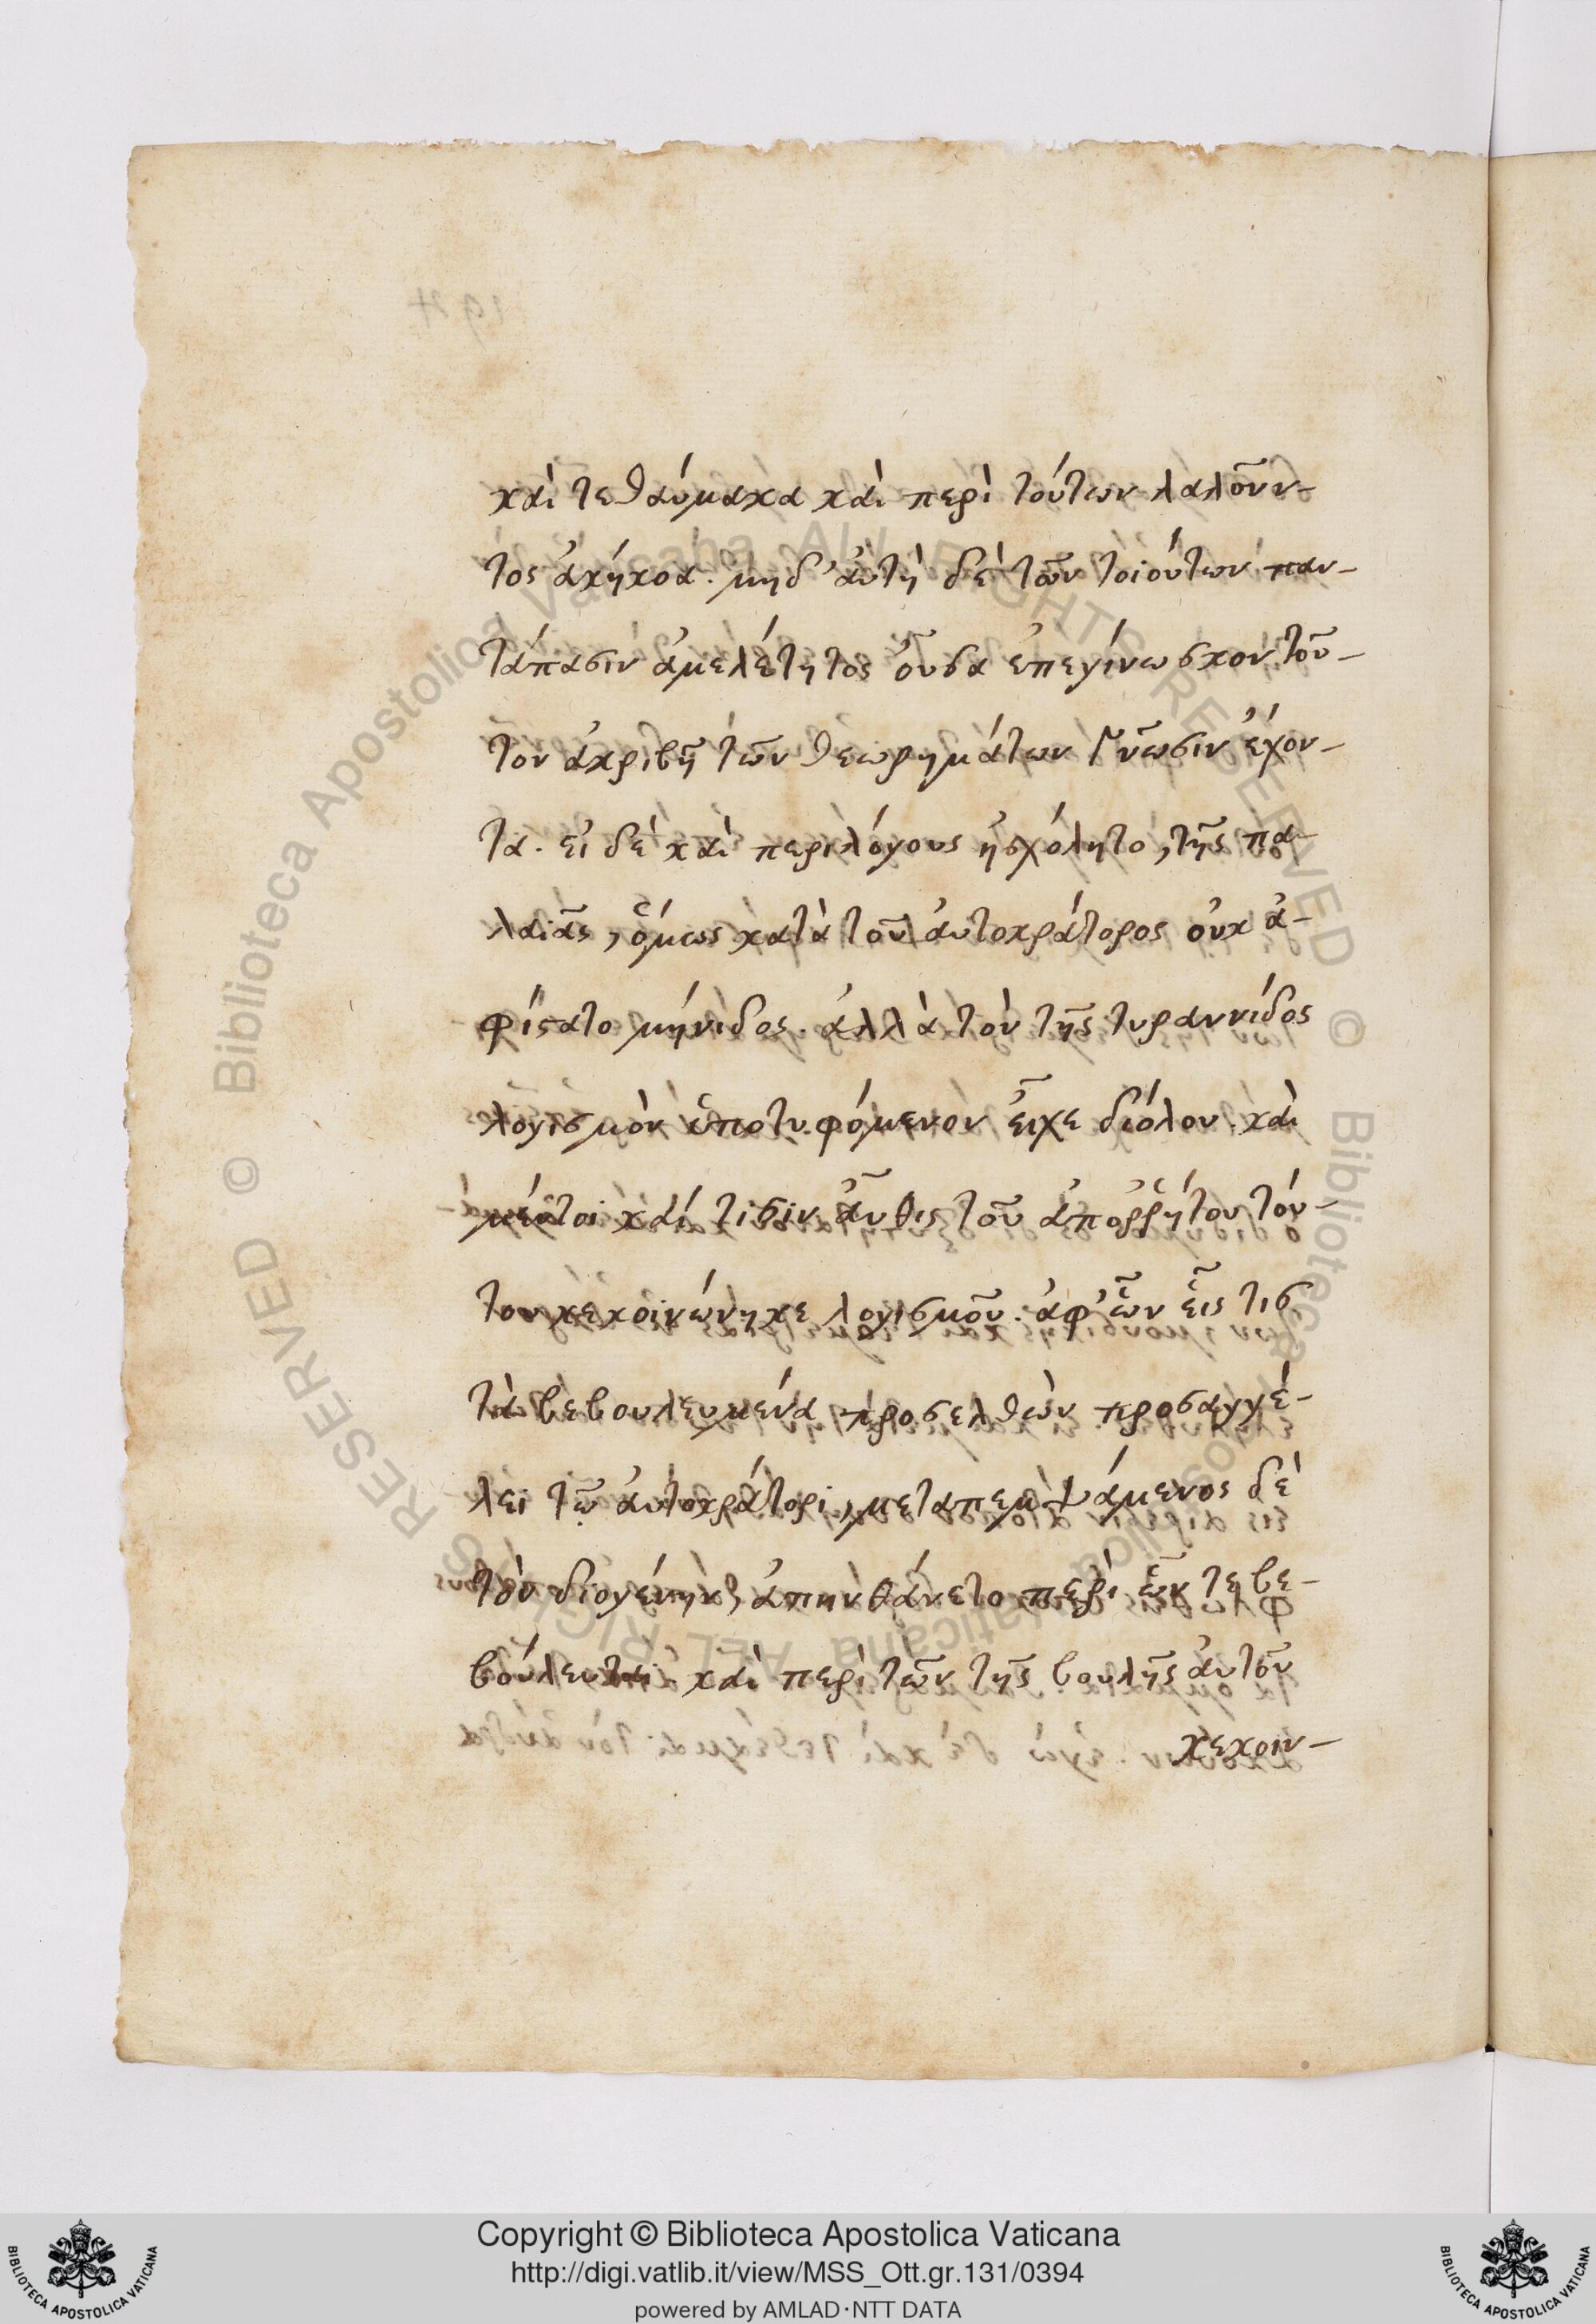 καὶ τεθαύμακα καὶ περὶ τούτων λαλοῦν-
τος ἀκήκοα. μηδ' ἀυτὴ δὲ τῶν τοιούτων παν-
τάπασιν ἀμελέτητος οὖσα ἐπεγίνωσκον τοῦ-
τον ἀκριβῆ τῶν θεωρημάτων γνῶσιν ἔχον-
τα. εἰ δὲ καὶ περὶ λόγους ἠσχόλητο, τῆς πα-
λαιᾶς, ὅμως κατὰ τοῦ ἀυτοκράτορος οὐκ ἀ-
φίστατο μήνιδος. ἀλλὰ τὸν τῆς τυραννίδος
λογισμὸν ὑποτυφόμενον εἶχε διόλου. καὶ
μέντοι καί τισιν ἆυθις τοῦ ἀποῤῥήτου τού-
του κεκοινώνηκε λογισμοῦ. ἀφ' ὧν εἷς τις
τὰ βεβουλευμένα προσελθὼν προσαγγέ-
λει τῷ ἀυτοκράτορι, μεταπεμψάμενος δὲ
τὸν διογένην, ἀπηνθάνετο περὶ ὧν τε βε-
βούλευται καὶ περὶ τῶν τῆς βουλῆς ἀυτοῦ
κεκοιν-
Copyright © Biblioteca Apostolica Vaticana
http://digi.vatlib.it/view/MSS_Ott.gr.131/0394
powered by AMLAD·NTT DATA